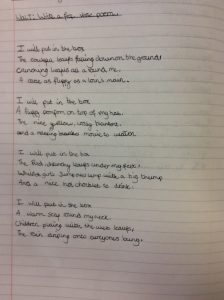 WALT: Write a free verse poem.
I will put in the box
The leaves falling down on the ground
Crunching leaves as around me.
A as fluffy as a lion's main.
I will put in the box
A fluffy pompom on top of my hat.
The nice yellow, cosy blanket.
and a relaxing movie to watch
I will put in the bo
The Red, crunchy leaves under my feet,
Whilst girls jump with a big thump
And a nice hot chocolate to drink.
I will put in the box
A warm scarf round my neck.
Children playing with the leafs,
The rain onto everyones